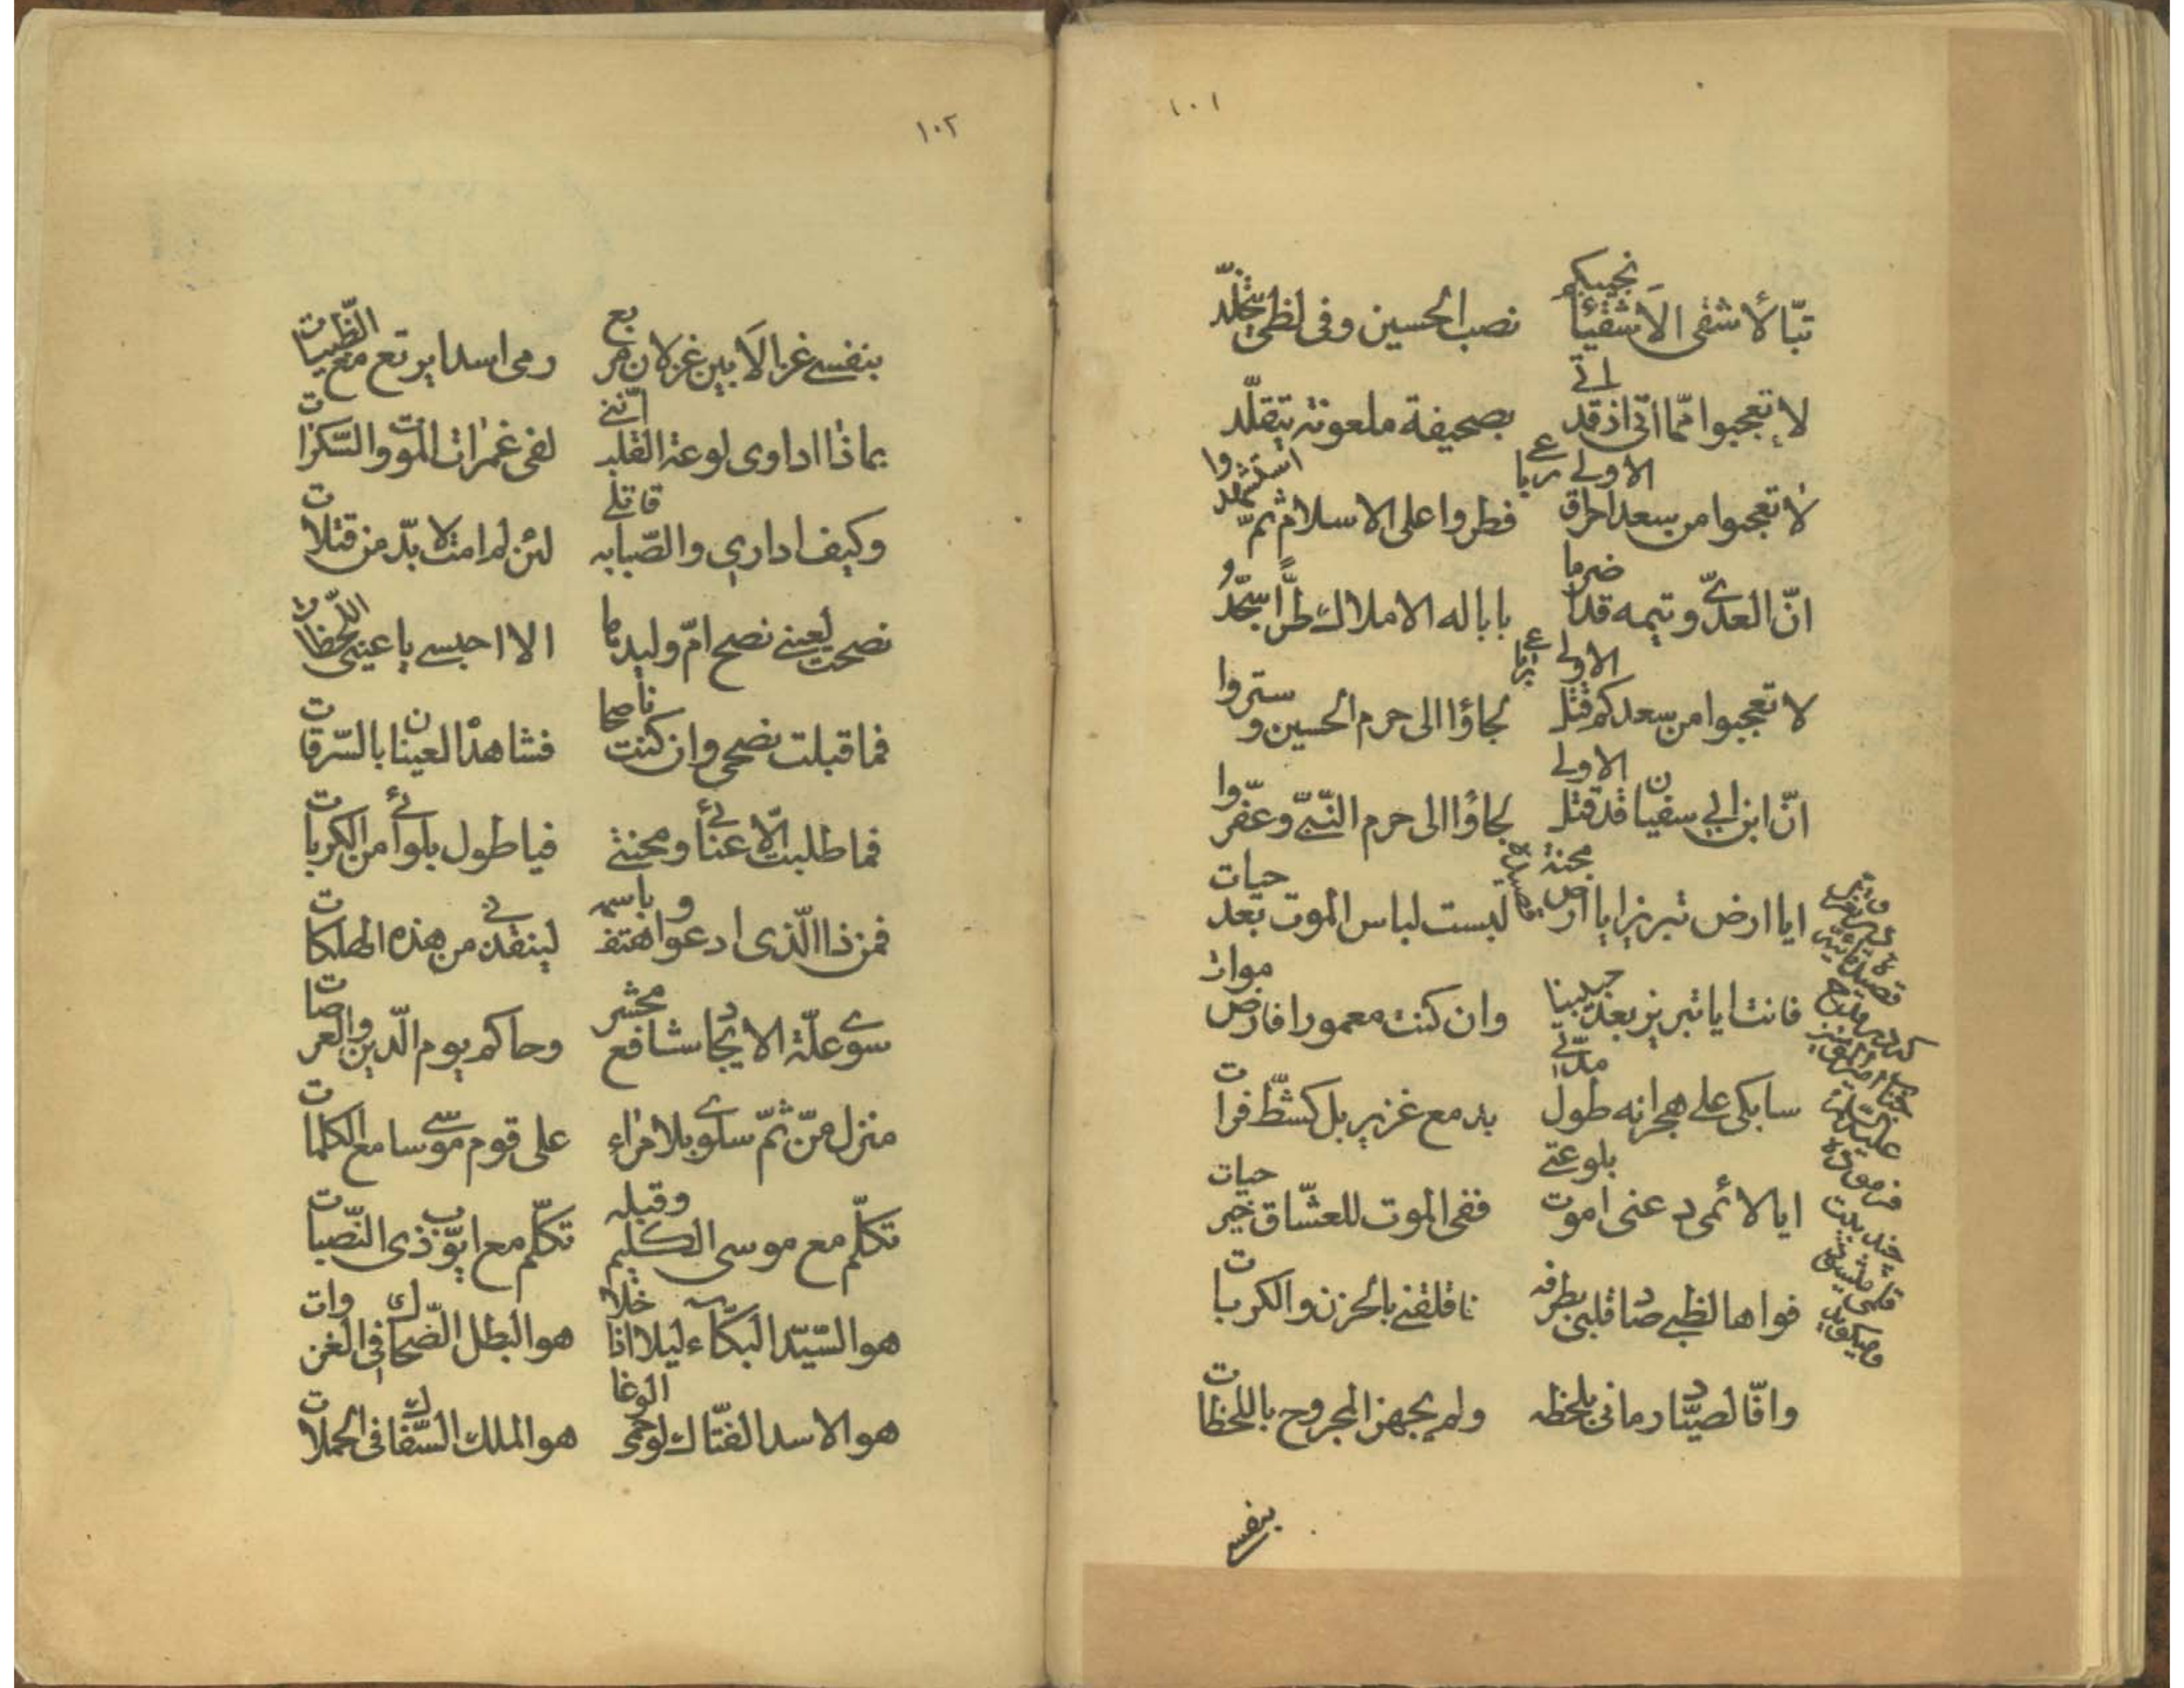 ١٠١
تبّا لأشقى الاَشقیٰا نجیبکم نصب الحسین وفی لظیٰ یتخلّد
لا تعجبوا ممّا اتیٰ اذ قد اتی بصحیفة ملعونة یتقلّد
لا تعجبوا من سعد احراق الاولی فطروا علی الاسلام ثمّ استشهدوا
انّ العدیّ وتیمه قد اضرما بابا له الاملاك طرًّا سجّدو
لا تعجبوا من سعدکم قتل الاولی لجاؤا الی حرم الحسین و ستروا
انّ ابن ابی سفیان قد قتل الاولی لجاؤا الی حرم النّبیّ وعفّروا
ایا ارض تبریز ایا ارض محنة لبست لباس الموت بعد حیات
فانت ایا تبریز بعد حبیبنا وان کنت معمورا فارض موات
سابکی علی هجرانه طول مدّتی بدمع غزیر بل کشطّ فرات
ایا لائمی دعنی اموت بلوعتی ففی الموت للعشّاق خیر حیات
فواها لظبی صاد قلبی بطرفه فاقلقنی بالحزن والکربات
وافّا لصیّاد رمانی بلحظه ولم یجهز المجروح باللحظات
قصیده
در مدح
علیه السلام
فرموده
چند بیت
قلمی
میگوید
بنفسی
١٠٢
بنفسی غزالاَ بین غزلان مربع رمی اسدا یرتع مع الظّبیات
بماذٰا اداوی لوعة القلب انّنی لفی غمرٰات الموت والسّکرات
وکیف اداری والصّبابه قاتلی لئن لم امت لا بدّ من قتلات
نصحت لعینی نصح امّ ولیدها الا احبسی یا عینی اللّحظات
فما قبلت نصحی وان کنت ناصحا فشاهد العینان بالسّرقات
فما طلبت الّا عنائی ومحنتی فیا طول بلوائی من الکربات
فمن ذا الّذی ادعو واهتف باسمه لینقذنی من هذه الهلکات
سوی علّة الایجاد شافع محشر وحاکم یوم الدّین والعرصات
منزل منّ ثمّ سلوی بلا مرٰاء علی قوم موسی سامع الکلمات
تکلّم مع موسی الکلیم وقبله تکلّم مع ایّوب ذی النّصبات
هو السّیّد البکّاء لیلا اذا خلا هو البطل الضّحاك فی الغزوات
هو الاسد الفتّاك لو حمی الوغا هو الملك السّفاك فی الحملات